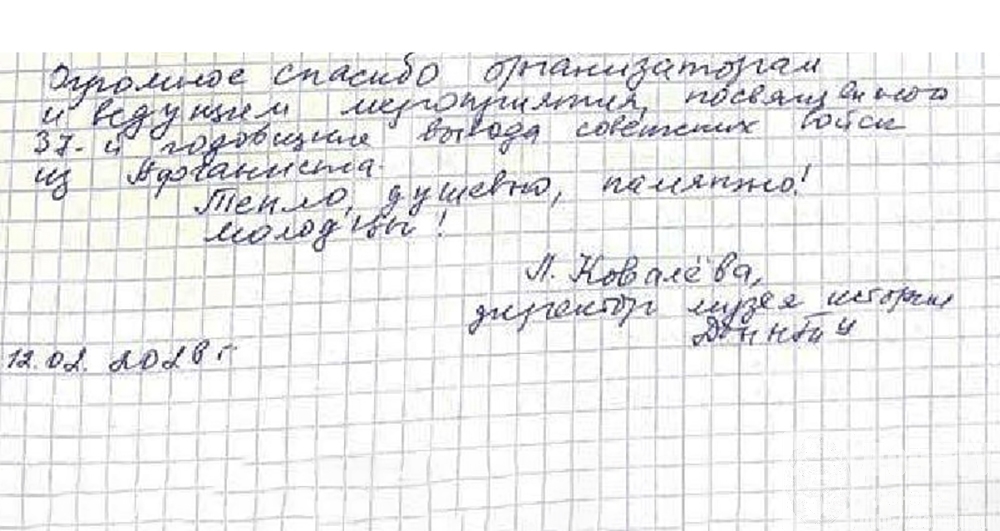 Огромное спасибо организаторам
и ведущем мероприятия, посвященного
37-й годовщине вывода советских войск
из Афганиста.
Тепло, душевно, памятно!
Молодцы!
Л. Ковалёва,
директор музея истории
12.02.2026 г.